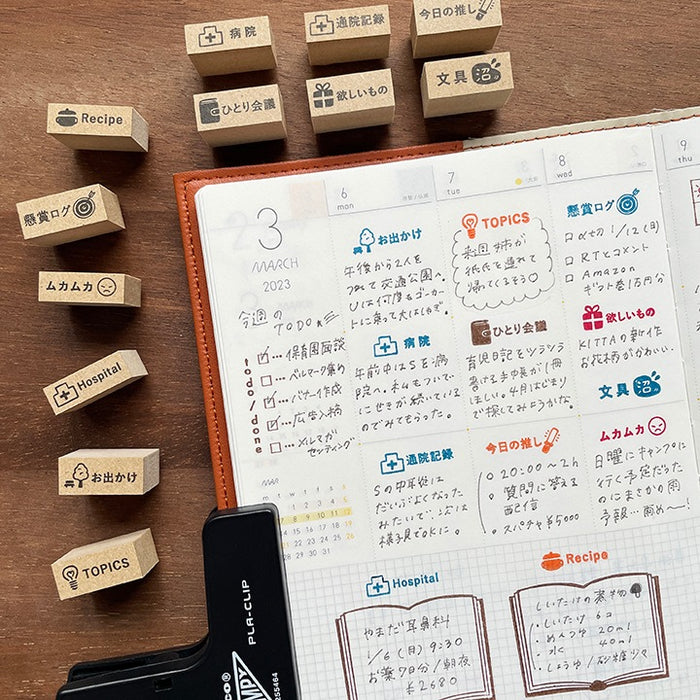 病院
通院記録
今日の推し
ひとり会議
欲しいもの
文具沼
Recipe
懸賞ログ
ムカムカ
Hospital
お出かけ
TOPICS
3
MARCH
2023
今週の
TODO
todo/done
保育園面談
ベルマーク集め
バナー作成
広告入稿
メルマガ
セッティング
MAR
m t w t f s s
6
mon
お出かけ
午後から2人を
つれて交通公園へ。
Uは何度もゴーカー
トに乗って大はしゃぎ。
病院
午前中はSを病
院へ。私もついで
にせきが続いている
のでみてもらった。
通院記録
Sの中耳炎は
だいぶよくなった
みたいで
様子見でOKに。
7
tue
TOPICS
来週姉が
姪氏を連れて
帰ってくるそう♡
ひとり会議
育児日記をツラツラ
書ける手帳が1冊
ほしい。4月はじまり
で探してみようかな。
今日の推し
20:00〜2h
質問に答える
配信
スパチャ¥5000
8
wed
懸賞ログ
〆切 1/12(日)
RTとコメント
Amazon
ギフト券1万円分
欲しいもの
KITTAの新作
お花柄がかわいい。
文具沼
ムカムカ
日曜にキャンプに
行く予定だった
のにまさかの雨
予報…雨め〜
9
thu
Hospital
やまだ耳鼻科
1/6(月) 9:30
お薬7日分/朝夜
¥2680
Recipe
しいたけの煮物
・しいたけ 6コ
・めんつゆ 20ml
・水 40ml
・しょうゆ/砂糖少々
PLA-CLIP